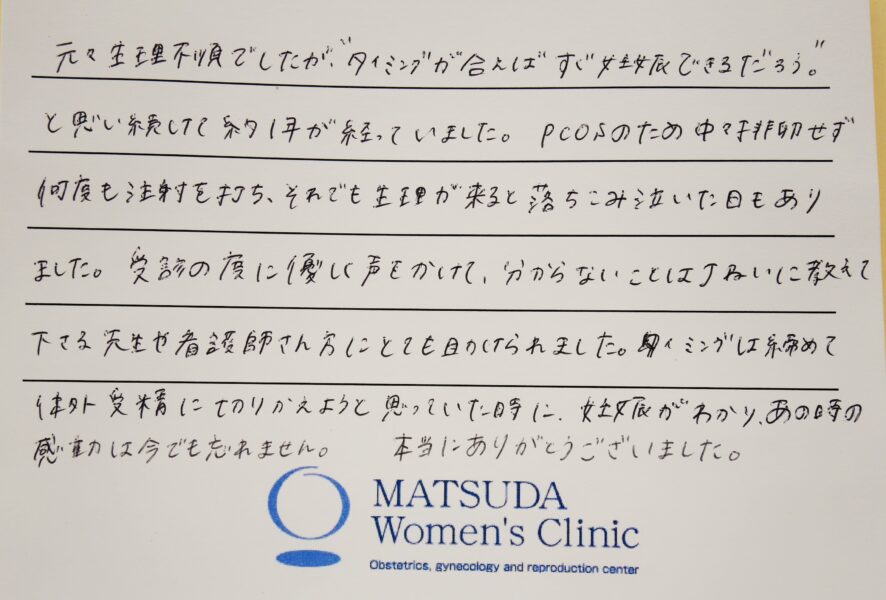 元々生理不順でしたが、"タイミングが合えばすぐ妊娠できるだろう。"
と思い続けて約1年が経っていました。 PCOSのため中々排卵せず
何度も注射を打ち、それでも生理が来ると落ちこみ泣いた日もあり
ました。受診の度に優しく声をかけて、分からないことは丁ねいに教えて
下さる先生や看護師さん方にとても助けられました。タイミングは締めて
体外受精に切りかえようと思っていた時に、妊娠がわかり、あの時の
感動は今でも忘れません。 本当にありがとうございました。
MATSUDA
Women's Clinic
Obstetrics, gynecology and reproduction center